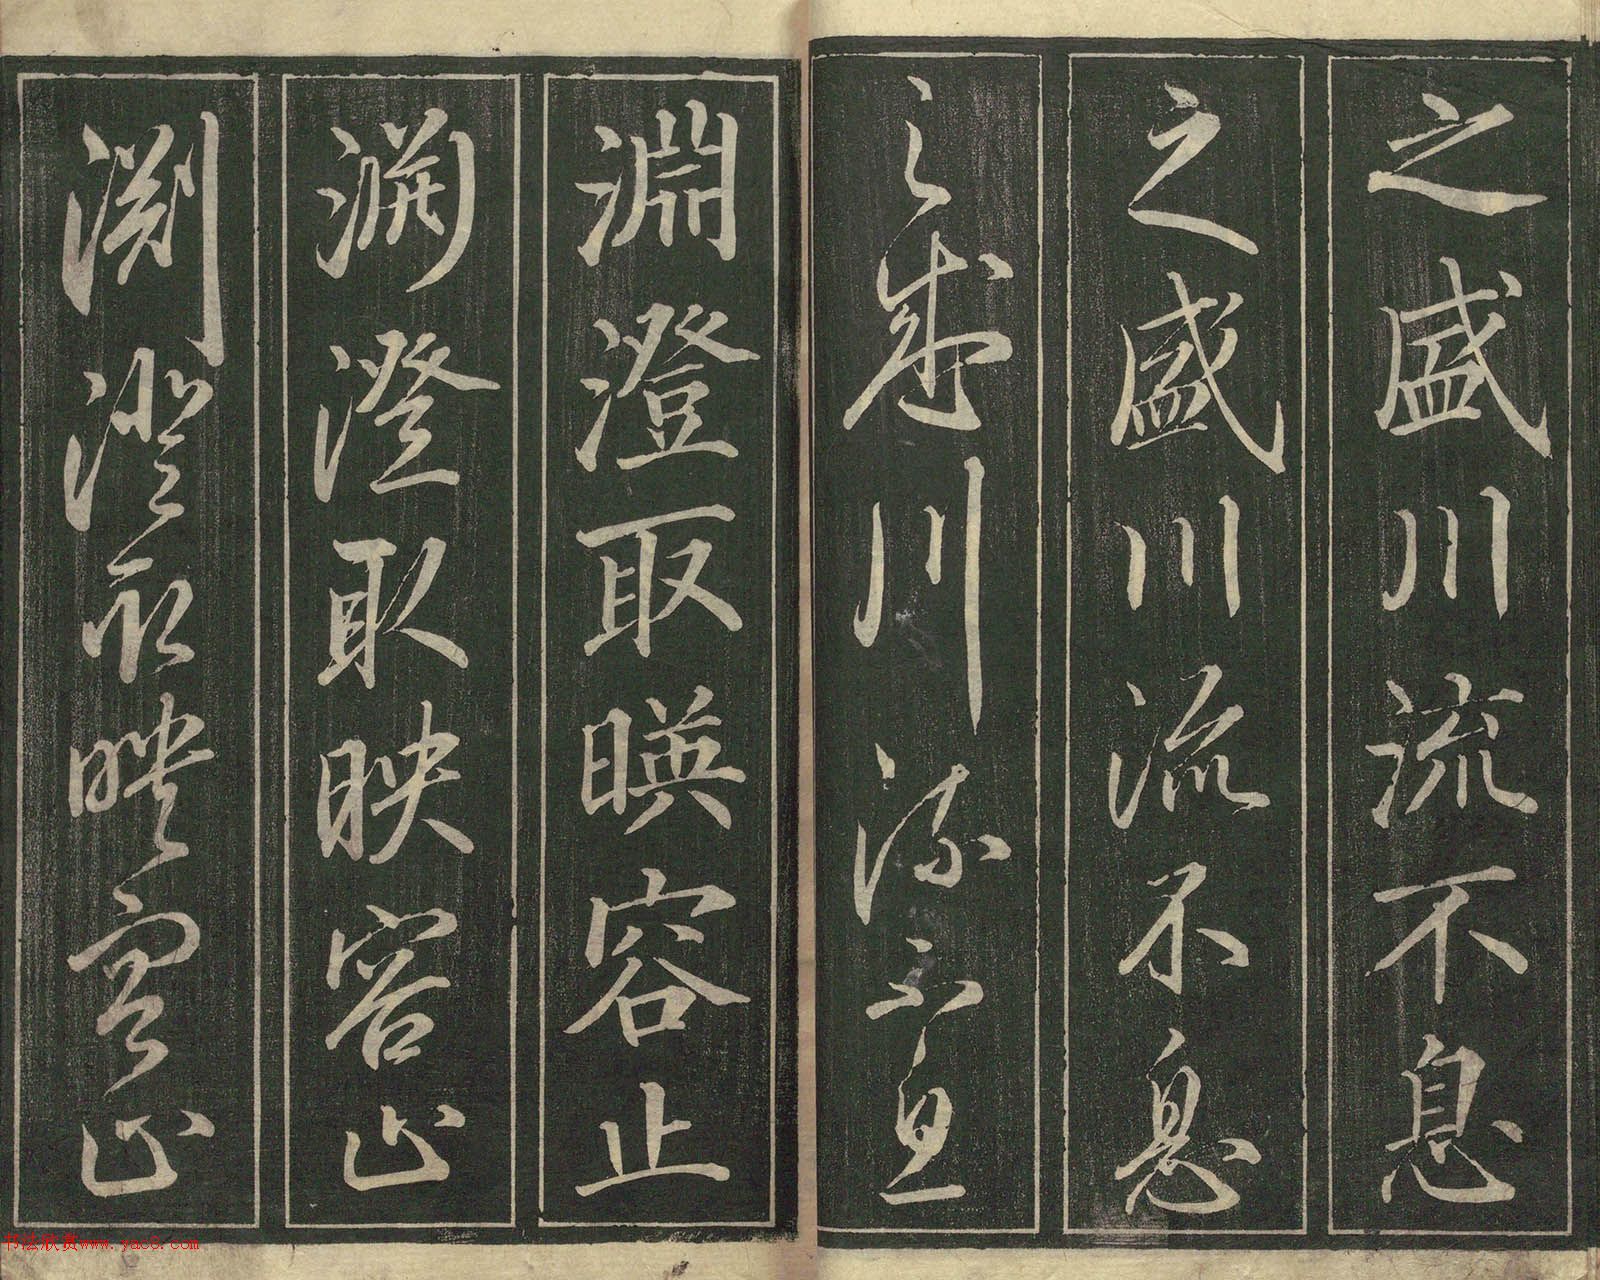 之盛川流不息
之盛川流不息
之盛川流不息
淵澄取暎容止
渊澄取映容止
渊澄取映容止
书法欣赏www.yac8.com